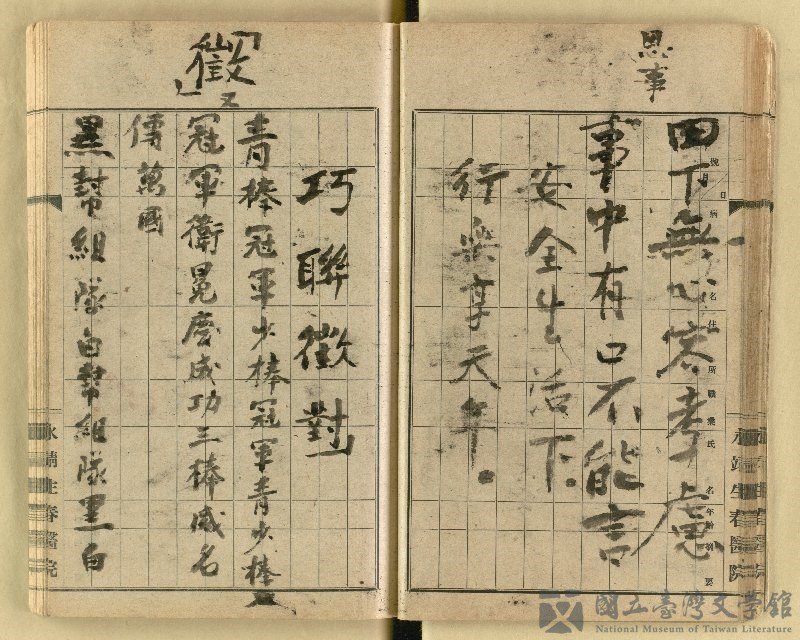 思事
田下無心容考慮
事中有口不能言
安全生活下。
行樂享天年。
永靖生春醫院
「徵」
又
巧聯徵對」
青棒冠軍少棒冠軍青少棒
冠軍衛冕慶成功三棒威名
傳萬國
黑幫組隊白幫組隊黑白
永靖生春醫院
國立臺灣文學館
National Museum of Taiwan Literature